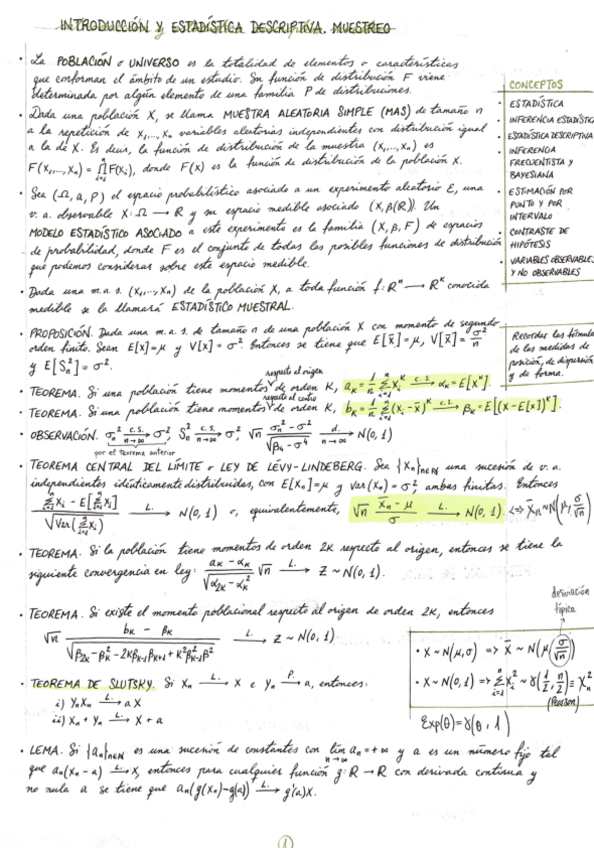 INTRODUCCIÓN Y ESTADÍSTICA DESCRIPTIVA. MUESTREO
· La POBLACIÓN o UNIVERSO es la totalidad de elementos o características
que conforman el ámbito de un estudio. Su función de distribución F viene
determinada por algún elemento de una familia P de distribuciones.
· Dada una población X, se llama MUESTRA ALEATORIA SIMPLE (MAS) de tamaño n
a la repetición de X₁,...,Xₙ variables aleatorias independientes con distribución igual
a la de X. Es decir, la función de distribución de la muestra (X₁,...,Xₙ) es
F(X₁,...,Xₙ) = ∏ᵢ₌₁ⁿ F(Xᵢ), donde F(x) es la función de distribución de la población X.
· Sea (Ω, a, P) el espacio probabilístico asociado a un experimento aleatorio E, una
v. a. observable X: Ω → R y su espacio medible asociado (X, β(R)). Un
MODELO ESTADÍSTICO ASOCIADO a este experimento es la familia (X, β, F) de espacios
de probabilidad, donde F es el conjunto de todas las posibles funciones de distribución
que podemos considerar sobre este espacio medible.
· Dada una m.a.s. (X₁,...,Xₙ) de la población X, a toda función f: Rⁿ → Rᵏ conocida
medible se la llamará ESTADÍSTICO MUESTRAL.
CONCEPTOS
· ESTADÍSTICA
· INFERENCIA ESTADÍSTIC
· ESTADÍSTICA DESCRIPTIVA
· INFERENCIA
FRECUENTISTA Y
BAYESIANA
· ESTIMACIÓN POR
PUNTO Y POR
INTERVALO
· CONTRASTE DE
HIPÓTESIS
· VARIABLES OBSERVABLES
Y NO OBSERVABLES
· PROPOSICIÓN. Dada una m.a.s. de tamaño n de una población X con momento de segundo
orden finito. Sean E[X]=μ y V[X] = σ². Entonces se tiene que E[X̄]=μ, V[X̄] = σ²/n
y E[Sₙ²] = σ².
Recordar las fórmulas
de las medidas de
posición, de dispersión
y de forma.
respecto al origen
· TEOREMA. Si una población tiene momentos de orden K, aₖ = 1/n ∑ᵢ₌₁ⁿ Xᵢᴷ —c.s.→ αₖ = E[Xᴷ].
respecto al centro
· TEOREMA. Si una población tiene momentos de orden K, bₖ = 1/n ∑ᵢ₌₁ⁿ (Xᵢ - X̄)ᴷ —c.s.→ βₖ = E[(X - E[X])ᴷ].
· OBSERVACIÓN. σₙ² —c.s. n→∞→ σ², Sₙ² —c.s. n→∞→ σ², √n (σₙ² - σ²)/√(β₄ - σ⁴) —d. n→∞→ N(0,1)
por el teorema anterior
· TEOREMA CENTRAL DEL LÍMITE o LEY DE LÉVY-LINDEBERG. Sea {Xₙ}ₙ∈N una sucesión de v. a.
independientes idénticamente distribuidas, con E[Xₙ]=μ y Var(Xₙ) = σ², ambas finitas. Entonces
(∑ᵢ₌₁ⁿ Xᵢ - E[∑ᵢ₌₁ⁿ Xᵢ])/√(Var(∑ᵢ₌₁ⁿ Xᵢ)) —L.→ N(0,1) o, equivalentemente, √n (X̄ₙ - μ)/σ —L.→ N(0,1). <=> X̄ₙ~N(μ, σ/√n)
· TEOREMA. Si la población tiene momentos de orden 2K respecto al origen, entonces se tiene la
siguiente convergencia en ley: (aₖ - αₖ)/√(α₂ₖ - αₖ²) √n —L.→ Z ~ N(0,1).
· TEOREMA. Si existe el momento poblacional respecto al origen de orden 2K, entonces
√n (bₖ - βₖ)/√(β₂ₖ - βₖ² - 2Kβₖ₋₁βₖ₊₁ + K²βₖ₋₁²β₂) —L.→ Z ~ N(0,1).
desviación
típica
· X ~ N(μ, σ) => X̄ ~ N(μ, σ/√n)
· X ~ N(0,1) => ∑ᵢ₌₁ⁿ Xᵢ² ~ γ(1/2, n/2) ≡ χₙ²
(PEARSON)
Exp(θ) = γ(θ, 1)
· TEOREMA DE SLUTSKY. Si Xₙ —L.→ X e Yₙ —P.→ a, entonces:
i) YₙXₙ —L.→ aX
ii) Xₙ + Yₙ —L.→ X + a
· LEMA. Si {aₙ}ₙ∈N es una sucesión de constantes con lim n→∞ aₙ = +∞ y a es un número fijo tal
que aₙ(Xₙ - a) —L.→ X, entonces para cualquier función g: R → R con derivada continua y
no nula a se tiene que aₙ(g(Xₙ)-g(a)) —L.→ g'(a)X.
1